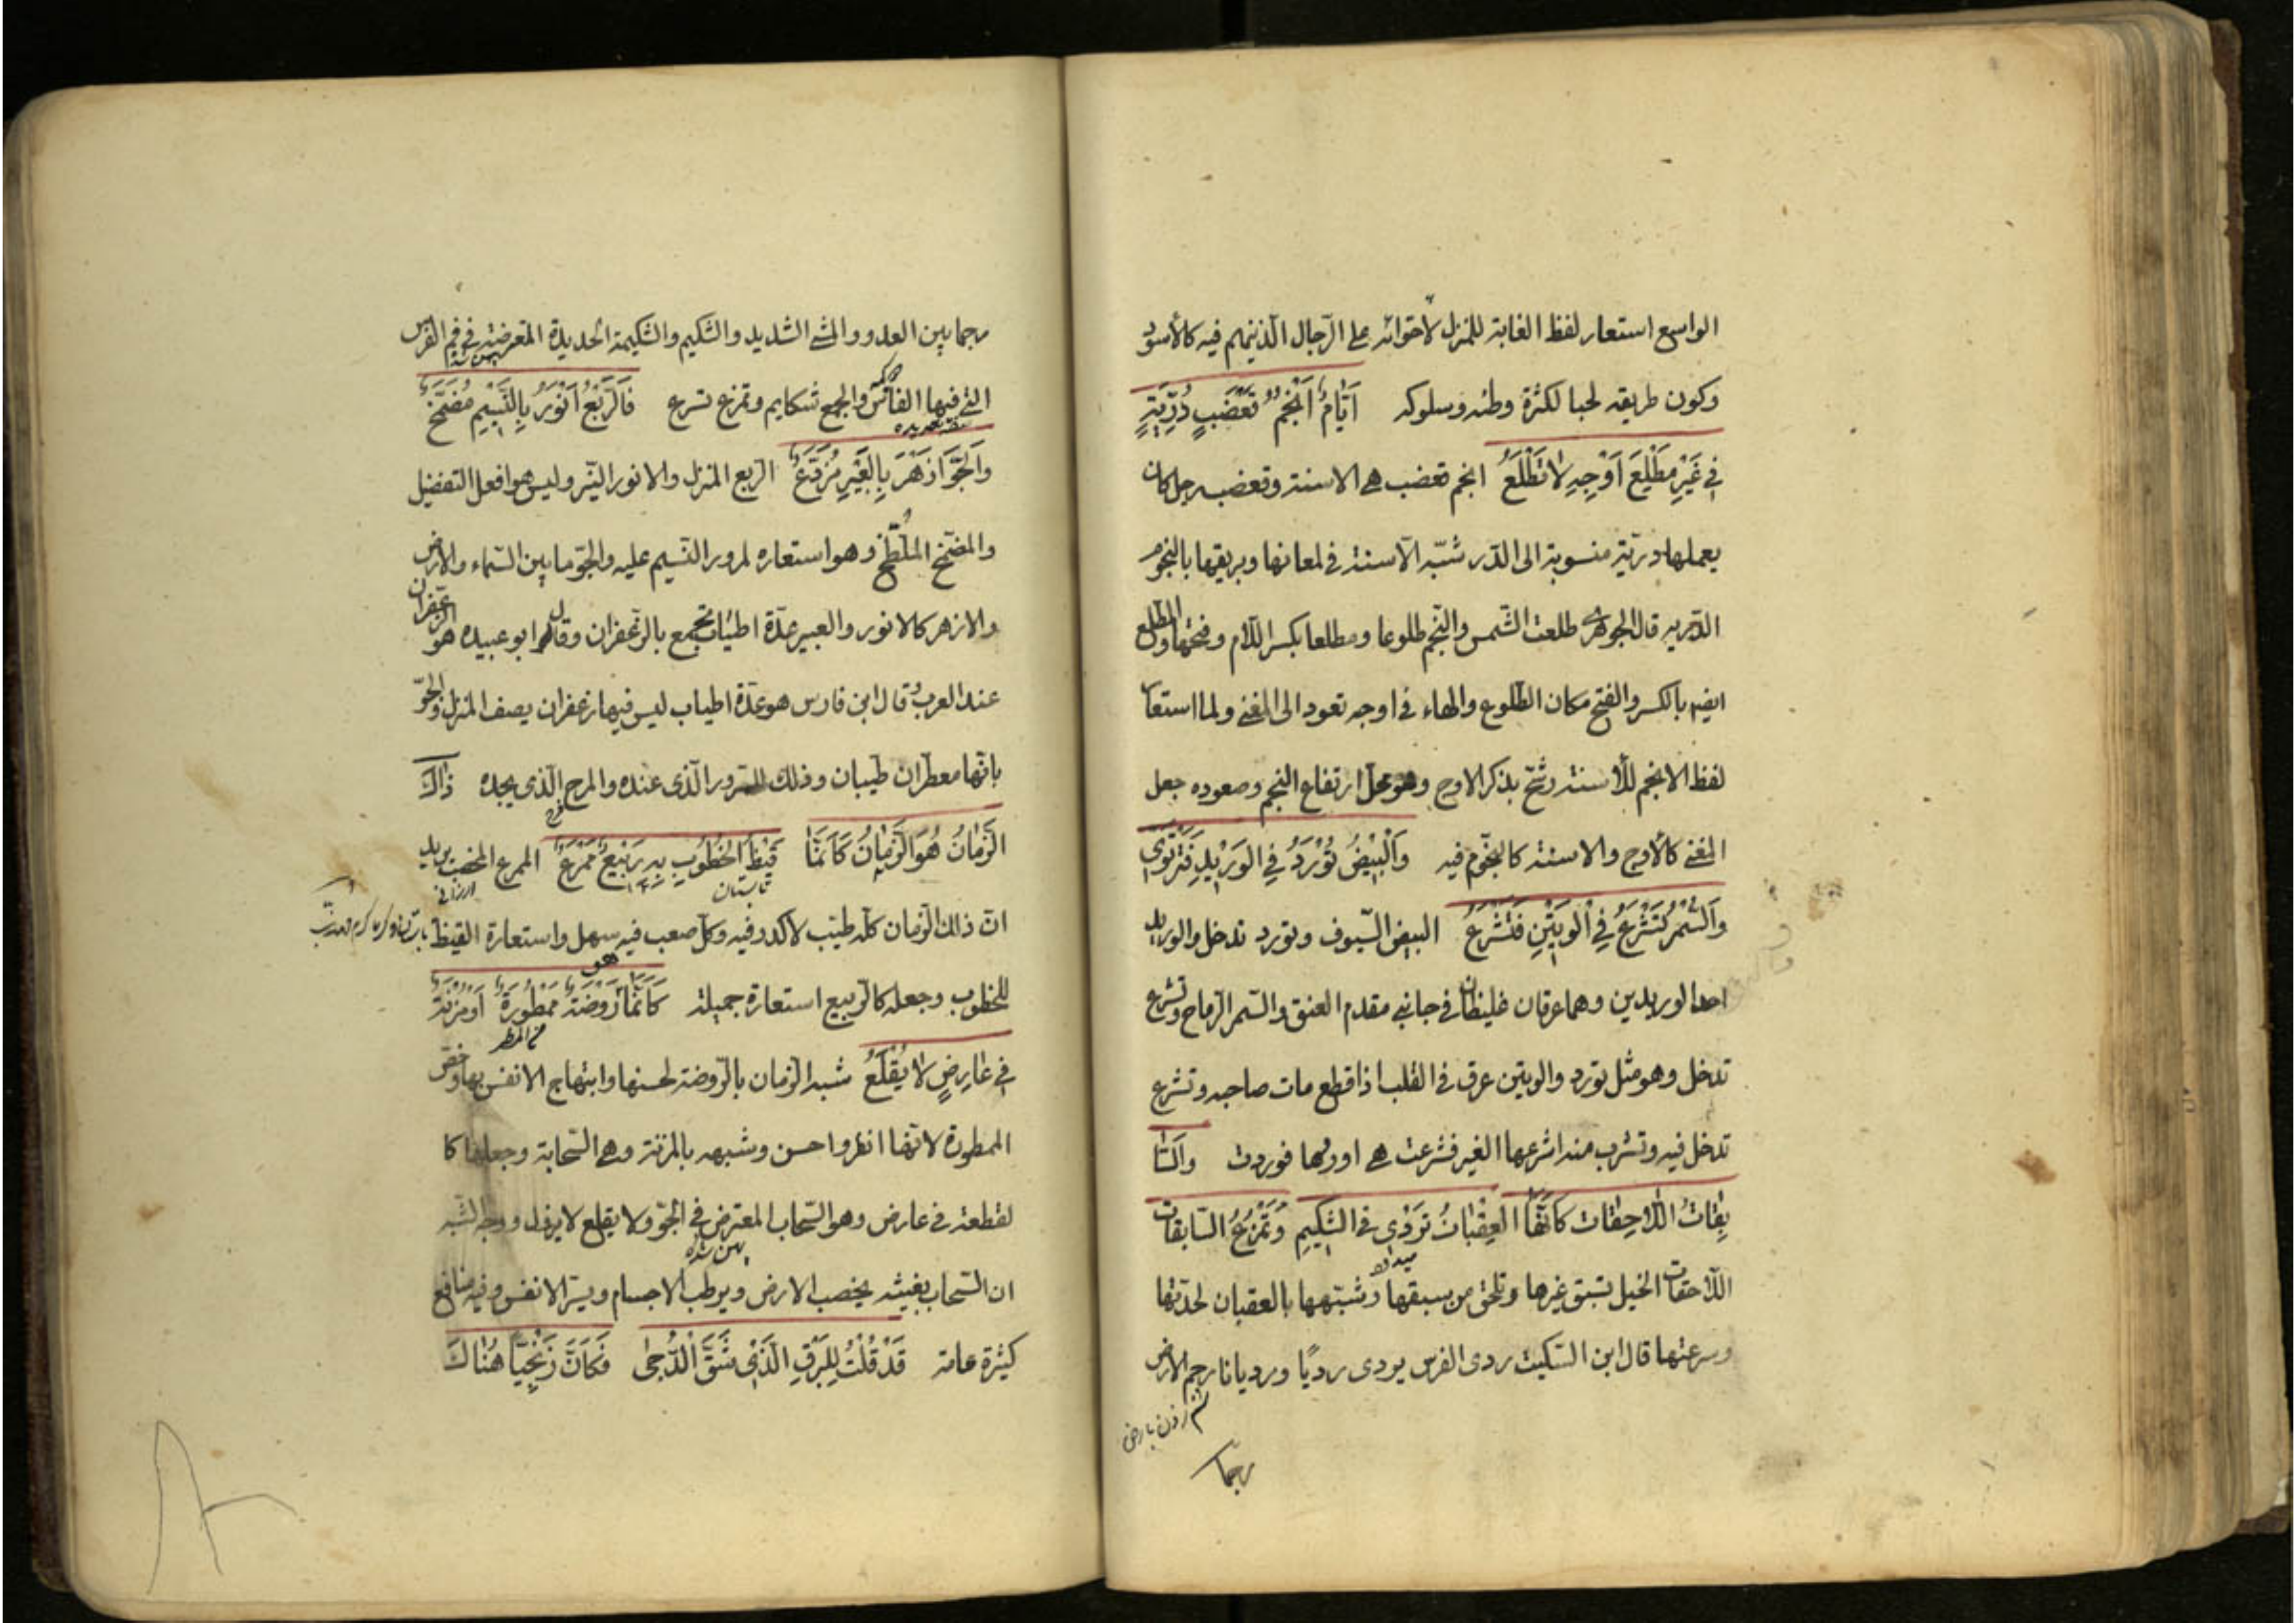 الواسع استعار لفظ الغابة للمنزل لاحتوائه على الرّجال الّذينهم فيه كالأسود
وكون طريقه لحبا لكثرة وطئه وسلوكه أيّام أنجم قعضب درّيّة
في غير مطلع أوجه لا تطلع انجم قعضب هي الاسنة وقعضب رجل كان
يعملها درّيّة منسوبة الى الدّر شبّه الأسنة في لمعانها وبريقها بالنجوم
الدّريه قال الجوهري طلعت الشّمس والنّجم طلوعا ومطلعا بكسر اللّام وفتحها والمطلع
ايضا بالكسر والفتح مكان الطّلوع والهاء في اوجه تعود الى المغنى ولما استعار
لفظ الانجم للأسنة رشّح بذكر الاوج وهو محلّ ارتفاع النجم وصعوده جعل
المغنى كالأوج والاسنة كالنجوم فيه والبيض تورد في الوريد فترتوي
والسّمر تشرع في الوتين فتشرع البيض السّيوف وتورد تدخل والوريد
احد الوريدين وهما عرقان غليظان في جانبي مقدم العنق والسّمر الرّماح وتشرع
تدخل وهو مثل تورد والوتين عرق في القلب اذا قطع مات صاحبه وتشرع
تدخل فيه وتشرب منه اشرعها الغير فشرعت هي اوردها فوردت والسّا
بقات اللّاحقات كأنّها العقبان تردي في الشّكيم وتمزع السّابقات
اللّاحقات الخيل تسبق غيرها وتلحق من سبقها وشبّهها بالعقبان لحدّتها
وسرعتها قال ابن السّكيت ردى الفرس يردى رديًا ورديانا رجم الارض
رجما
رجما بين العدو والمشي الشديد والشكيم والشكيمة الحديدة المتعرضة في فم الفرس
التي فيها الفأس والجمع شكايم وتمزع تسرع فالرّبع أنور بالنّسيم مضمّخ
والجوّ أزهر بالعبير مردّع الربع المنزل والانور النيّر وليس هو افعل التفضيل
والمضمّخ الملطّخ وهو استعاره لمرور النّسيم عليه والجوّ ما بين السّماء والارض
والازهر كالانور والعبير عدّة اطياب تجمع بالزعفران وقال ابو عبيده هو الزعفران
عند العرب وقال ابن فارس هو عدّة اطياب ليس فيها زعفران يصف المنزل والجوّ
بانّهما معطّران طيبان وذلك للسّرور الّذي عنده والمرح الّذي يجده ذاك
الزّمان هو الزّمان كأنّما قيظ الخطوب به ربيع ممرع الممرع المخصب يريد
تابستان
انّ ذلك الزّمان كلّه طيّب لا كدر فيه وكلّ صعب فيه سهل واستعارة القيظ
للخطوب وجعله كالرّبيع استعارة جميلة كأنّما روضة ممطورة أو مزنة
في عارض لا يقلع شبه الزّمان بالرّوضة لحسنها وابتهاج الانفس بها وخصّ
الممطورة لانّها انظر واحسن وشبهه بالمزنة وهي السّحابة وجعلها كا
لقطعة في عارض وهو السّحاب المعترض في الجوّ ولا يقلع لا يزول ووجه الشبه
ان السّحاب بغيثه يخصب الارض ويرطب الاجسام ويسرّ الانفس وفيه منافع
كثيرة عامة قد قلت للبرق الّذي شقّ الدّجى فكأنّ زنجيّا هناك